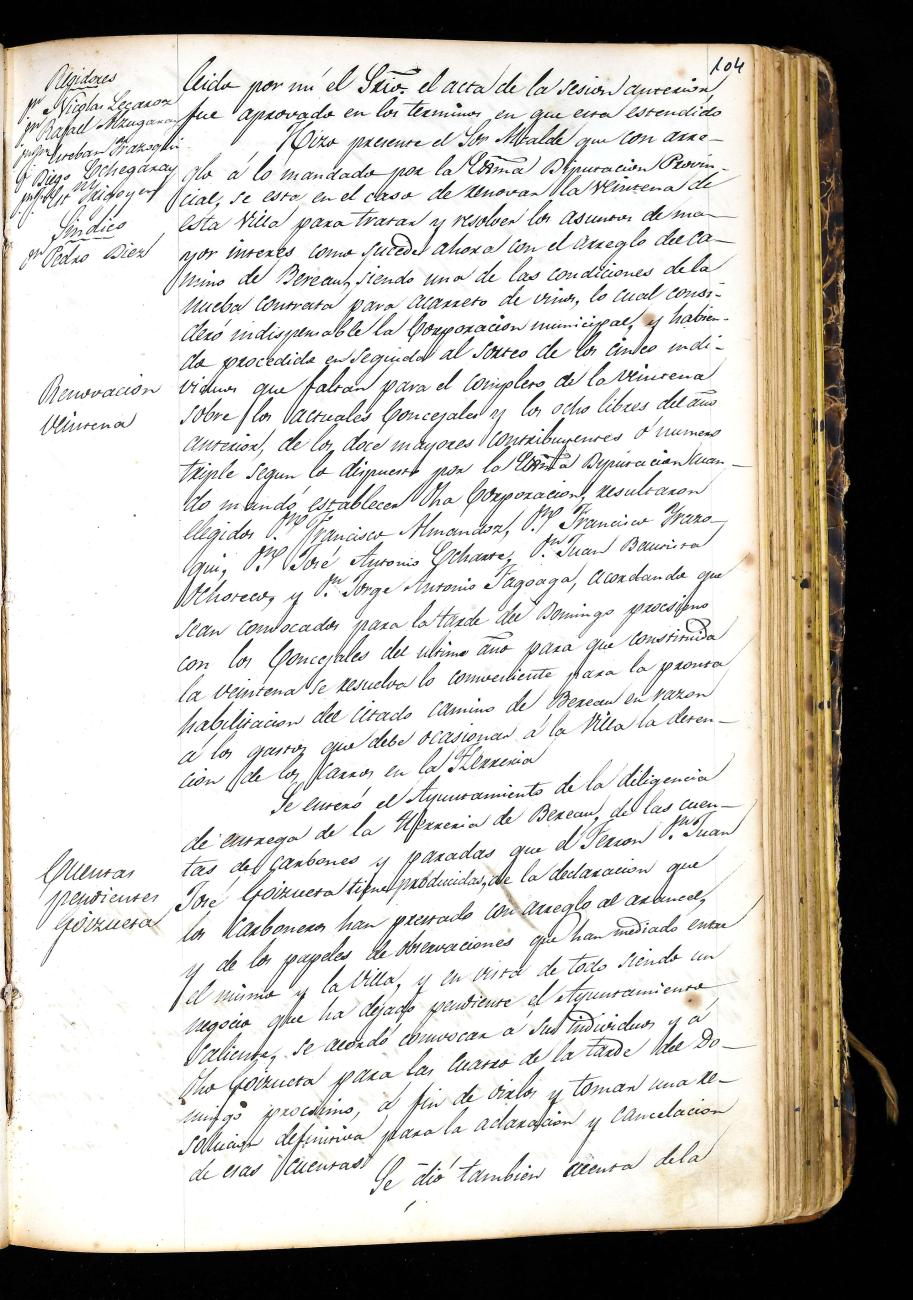 104
Regidores
Nicolas Lezaron
Rafael Alzugaray
Esteban Yrazoqui
Diego Echegaray
Yrigoyen
Sindico
Pedro Biera
leida por mi el Srio. el acta de la sesion anterior,
fue aprovado en los terminos en que esta estendido
Hizo presente el Sor Alcalde que con arre-
glo á lo mandado por la Exma Diputacion Provin-
cial, se esta en el caso de renovar la veintena de
esta Villa para tratar y resolver los asuntos de ma-
yor interes como sucede ahora con el arreglo del ca-
mino de Bereau, siendo una de las condiciones de la
nueba contrata para acarreto de vinos, lo cual consi-
deró indispensable la Corporacion municipal, y habien-
do procedido en seguida al sorteo de los cinco indi-
Renovacion
veintena
viduos que faltan para el completo de la veintena
sobre los actuales Concejales y los ocho libres del año
anterior, de los doce mayores contribuyentes o numero
triple segun lo dispuesto por la Exma Diputacion cuan-
do mandó establecer dha Corporacion, resultaron
elegidos Dn. Francisco Almandoz, Dn. Francisco Yrazo-
qui, Dn. José Antonio Echarte, Dn. Juan Bautista
Ochoteco, y Dn. Jorge Antonio Fagoaga, acordando que
sean convocados para la tarde del Domingo procsimo
con los Concejales del ultimo año para que constituida
la veintena se resuelva lo combeniente para la pronta
habilitacion del citado camino de Bereau en razon
a los gastos que debe ocasionar á la Villa la deten-
cion de los carros en la Herreria
Se enteró el Ayuntamiento de la diligencia
de entrega de la Herreria de Bereau, de las cuen-
Cuentas
pendientes
Goizueta
tas de carbones y paradas que el Ferron Dn. Juan
José Goizueta tiene producidas, de la declaracion que
los Carboneros han prestado con arreglo al arancel,
y de los papeles de observaciones que han mediado entre
el mismo y la Villa, y en vista de todo siendo un
negocio que ha dejado pendiente el Ayuntamiento
saliente, se acordó convocar a sus individuos y á
dho Goizueta para las cuatro de la tarde del Do-
mingo procsimo, a fin de oirlos y tomar una re-
solucion definitiva para la aclaracion y cancelacion
de esas cuentas
Se dió tambien cuenta de la